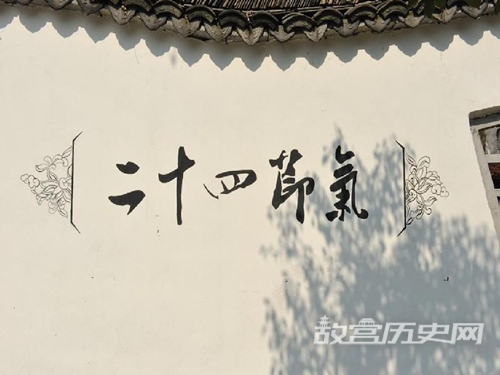 二十四節氣
故宫历史网